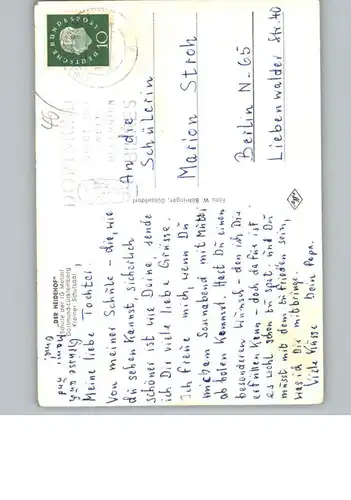 DEUTSCHE BUNDESPOST
10
An die
Schülerin
Marion Stroh
Berlin N-65
Liebenwalder Str. 40
Foto W. Böhringer, Düsseldorf
"DER HEIDEHOF"
Schule der IG Metall
Dortmund-Lücklemberg
Kleiner Schulsaal
Meine liebe Tochter,
Von meiner Schule - die, wie
du sehen kannst, sicherlich
schöner ist wie Deine, sende
ich Dir viele liebe Grüsse.
Ich freue mich, wenn Du
mich am Sonnabend mit Mutti
ab holen kannst. Hast Du einen
besonderen Wunsch - den ich Dir
erfüllen kann - doch dafür ist
es wohl schon zu spät; und Du
müsst mit dem zu frieden sein,
was ich Dir mitbringe.
Viele Küsse Dein Papa.
Grüsse an
Mami und
Omi.